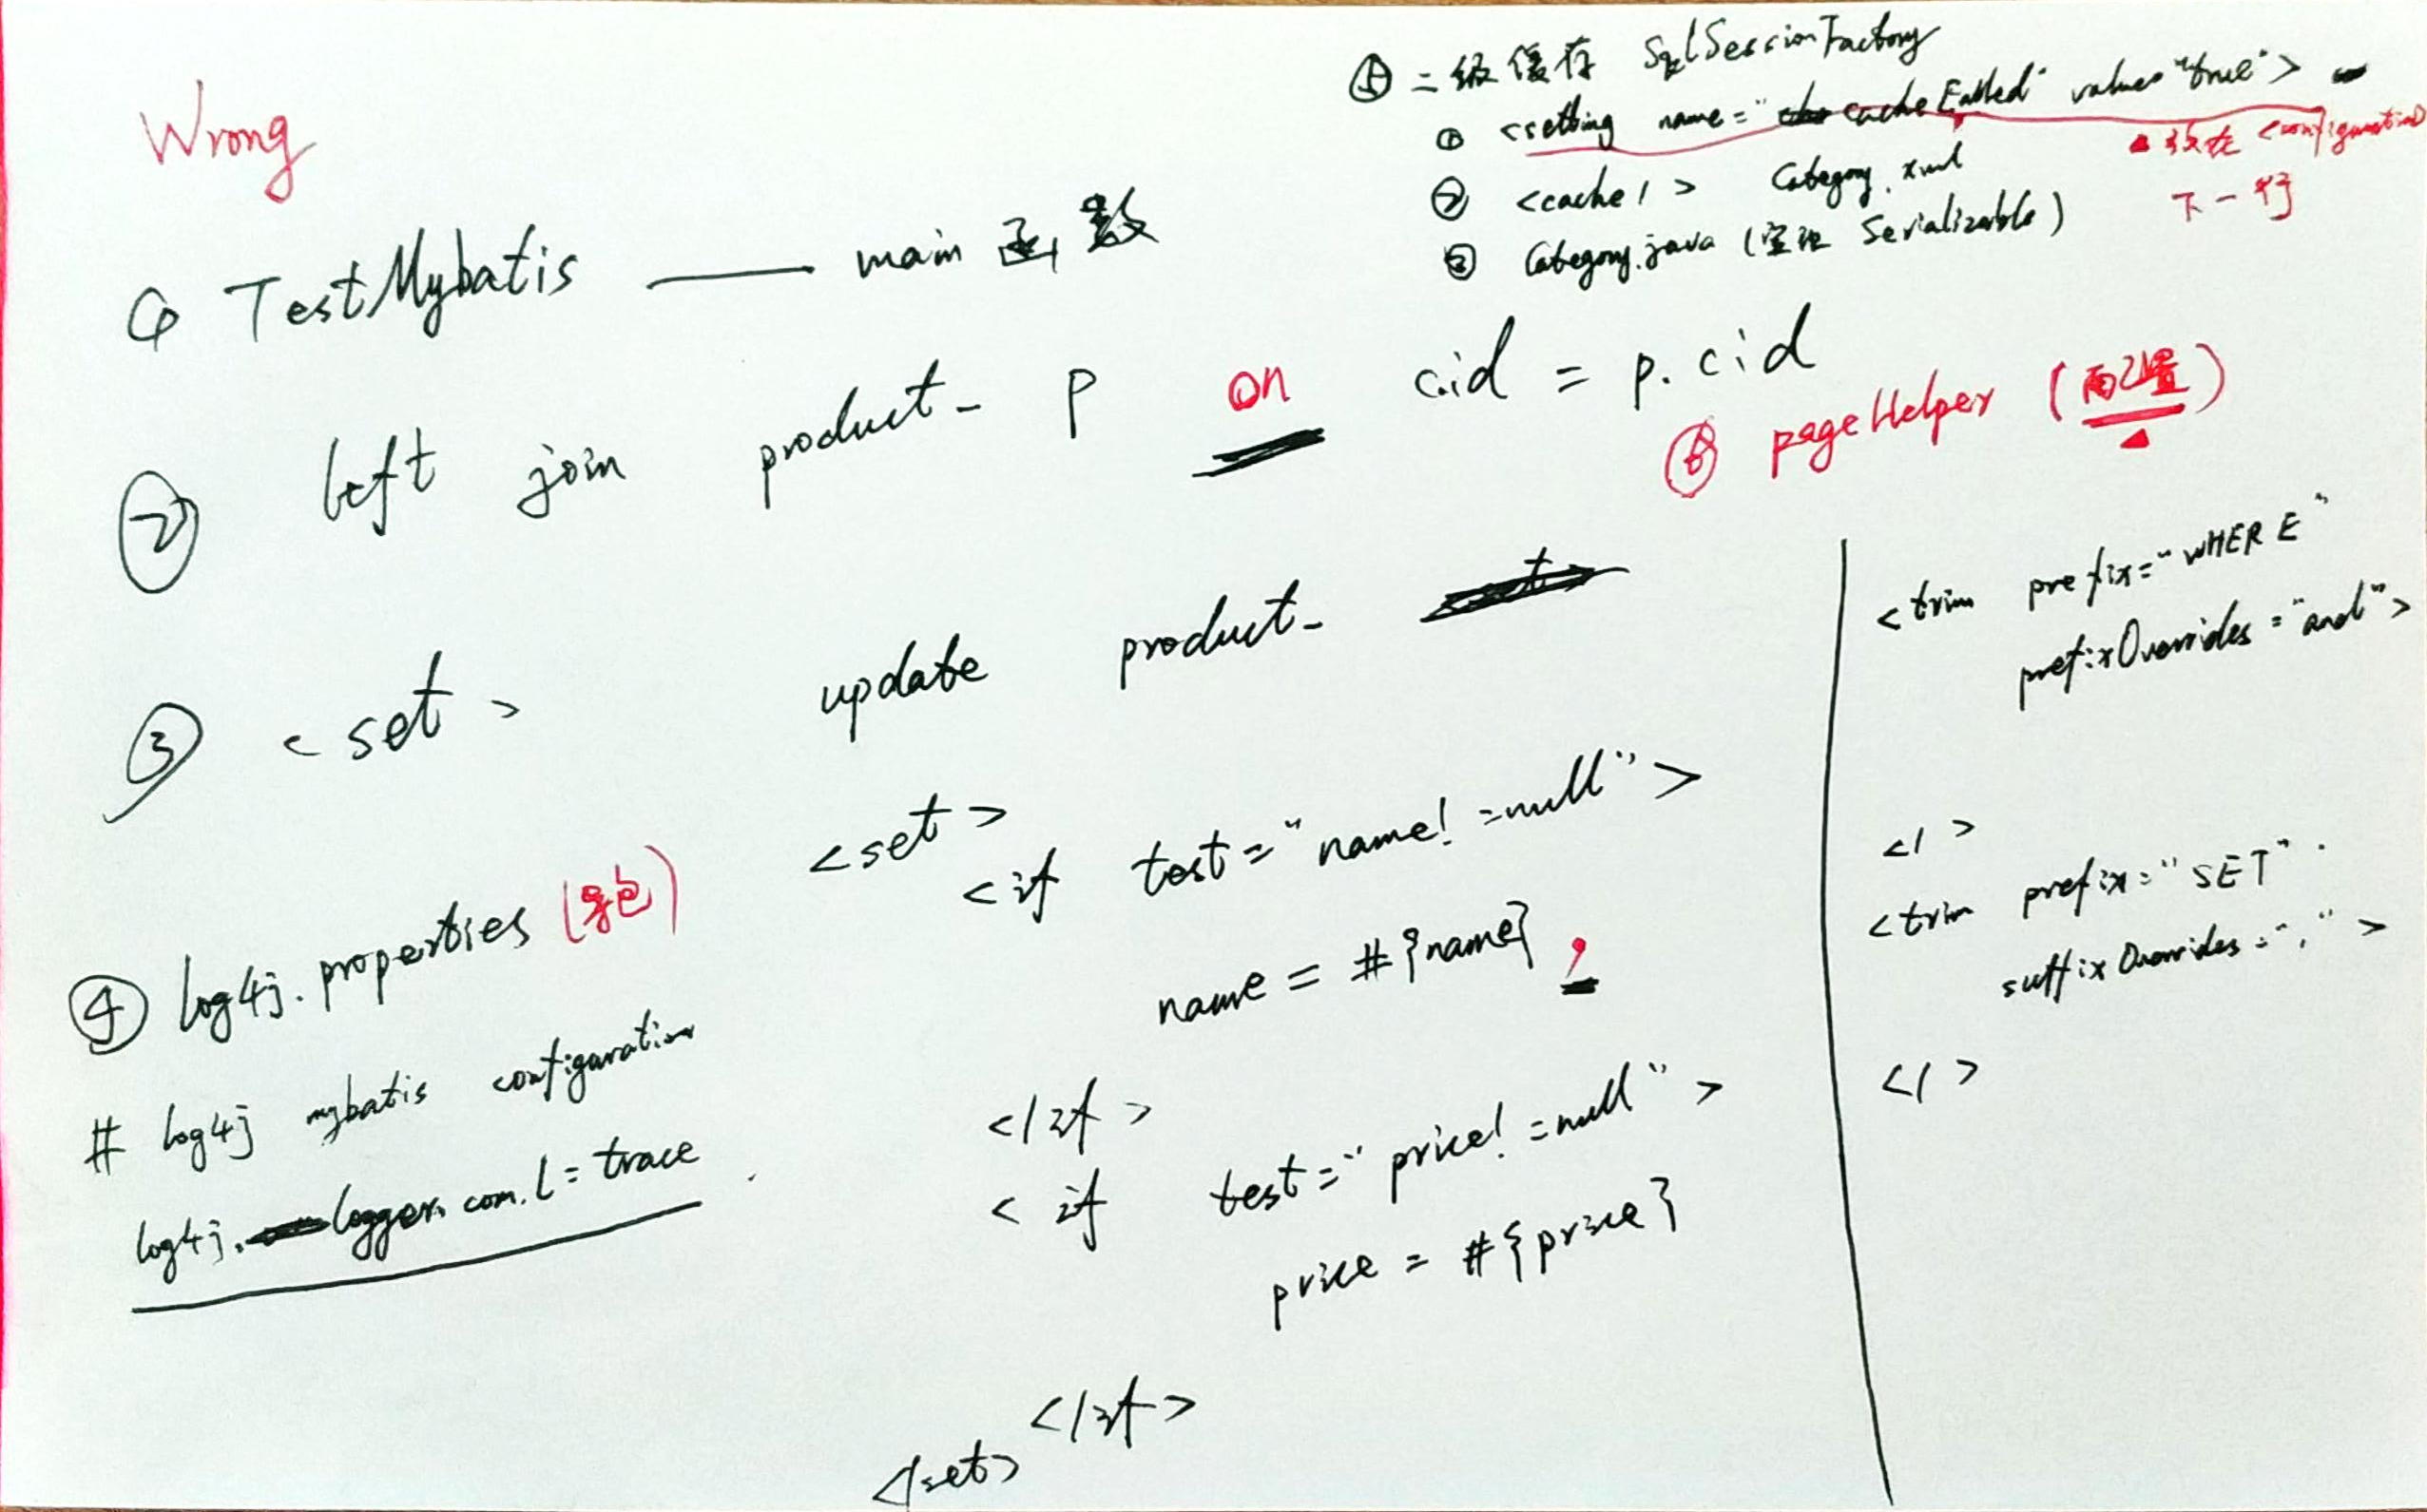 Wrong
① TestMybatis —— main 函数
② left join product_ p on c.id = p.cid
③ <set> update product_
<set>
<if test="name!=null">
name = #{name},
</if>
<if test="price!=null">
price = #{price}
</if>
</set>
④ log4j.properties (导包)
# log4j mybatis configuration
log4j.logger.com.l=trace
⑤ 二级缓存 SqlSessionFactory
① <setting name="cacheEabled" value="true">
▲ 放在 <configuration>
下一行
② <cache/> Category.xml
③ Category.java (实现 Serializable)
⑥ pageHelper (配置)
<trim prefix="WHERE"
prefixOverrides="and">
</>
<trim prefix="SET"
suffixOverrides=",">
</>